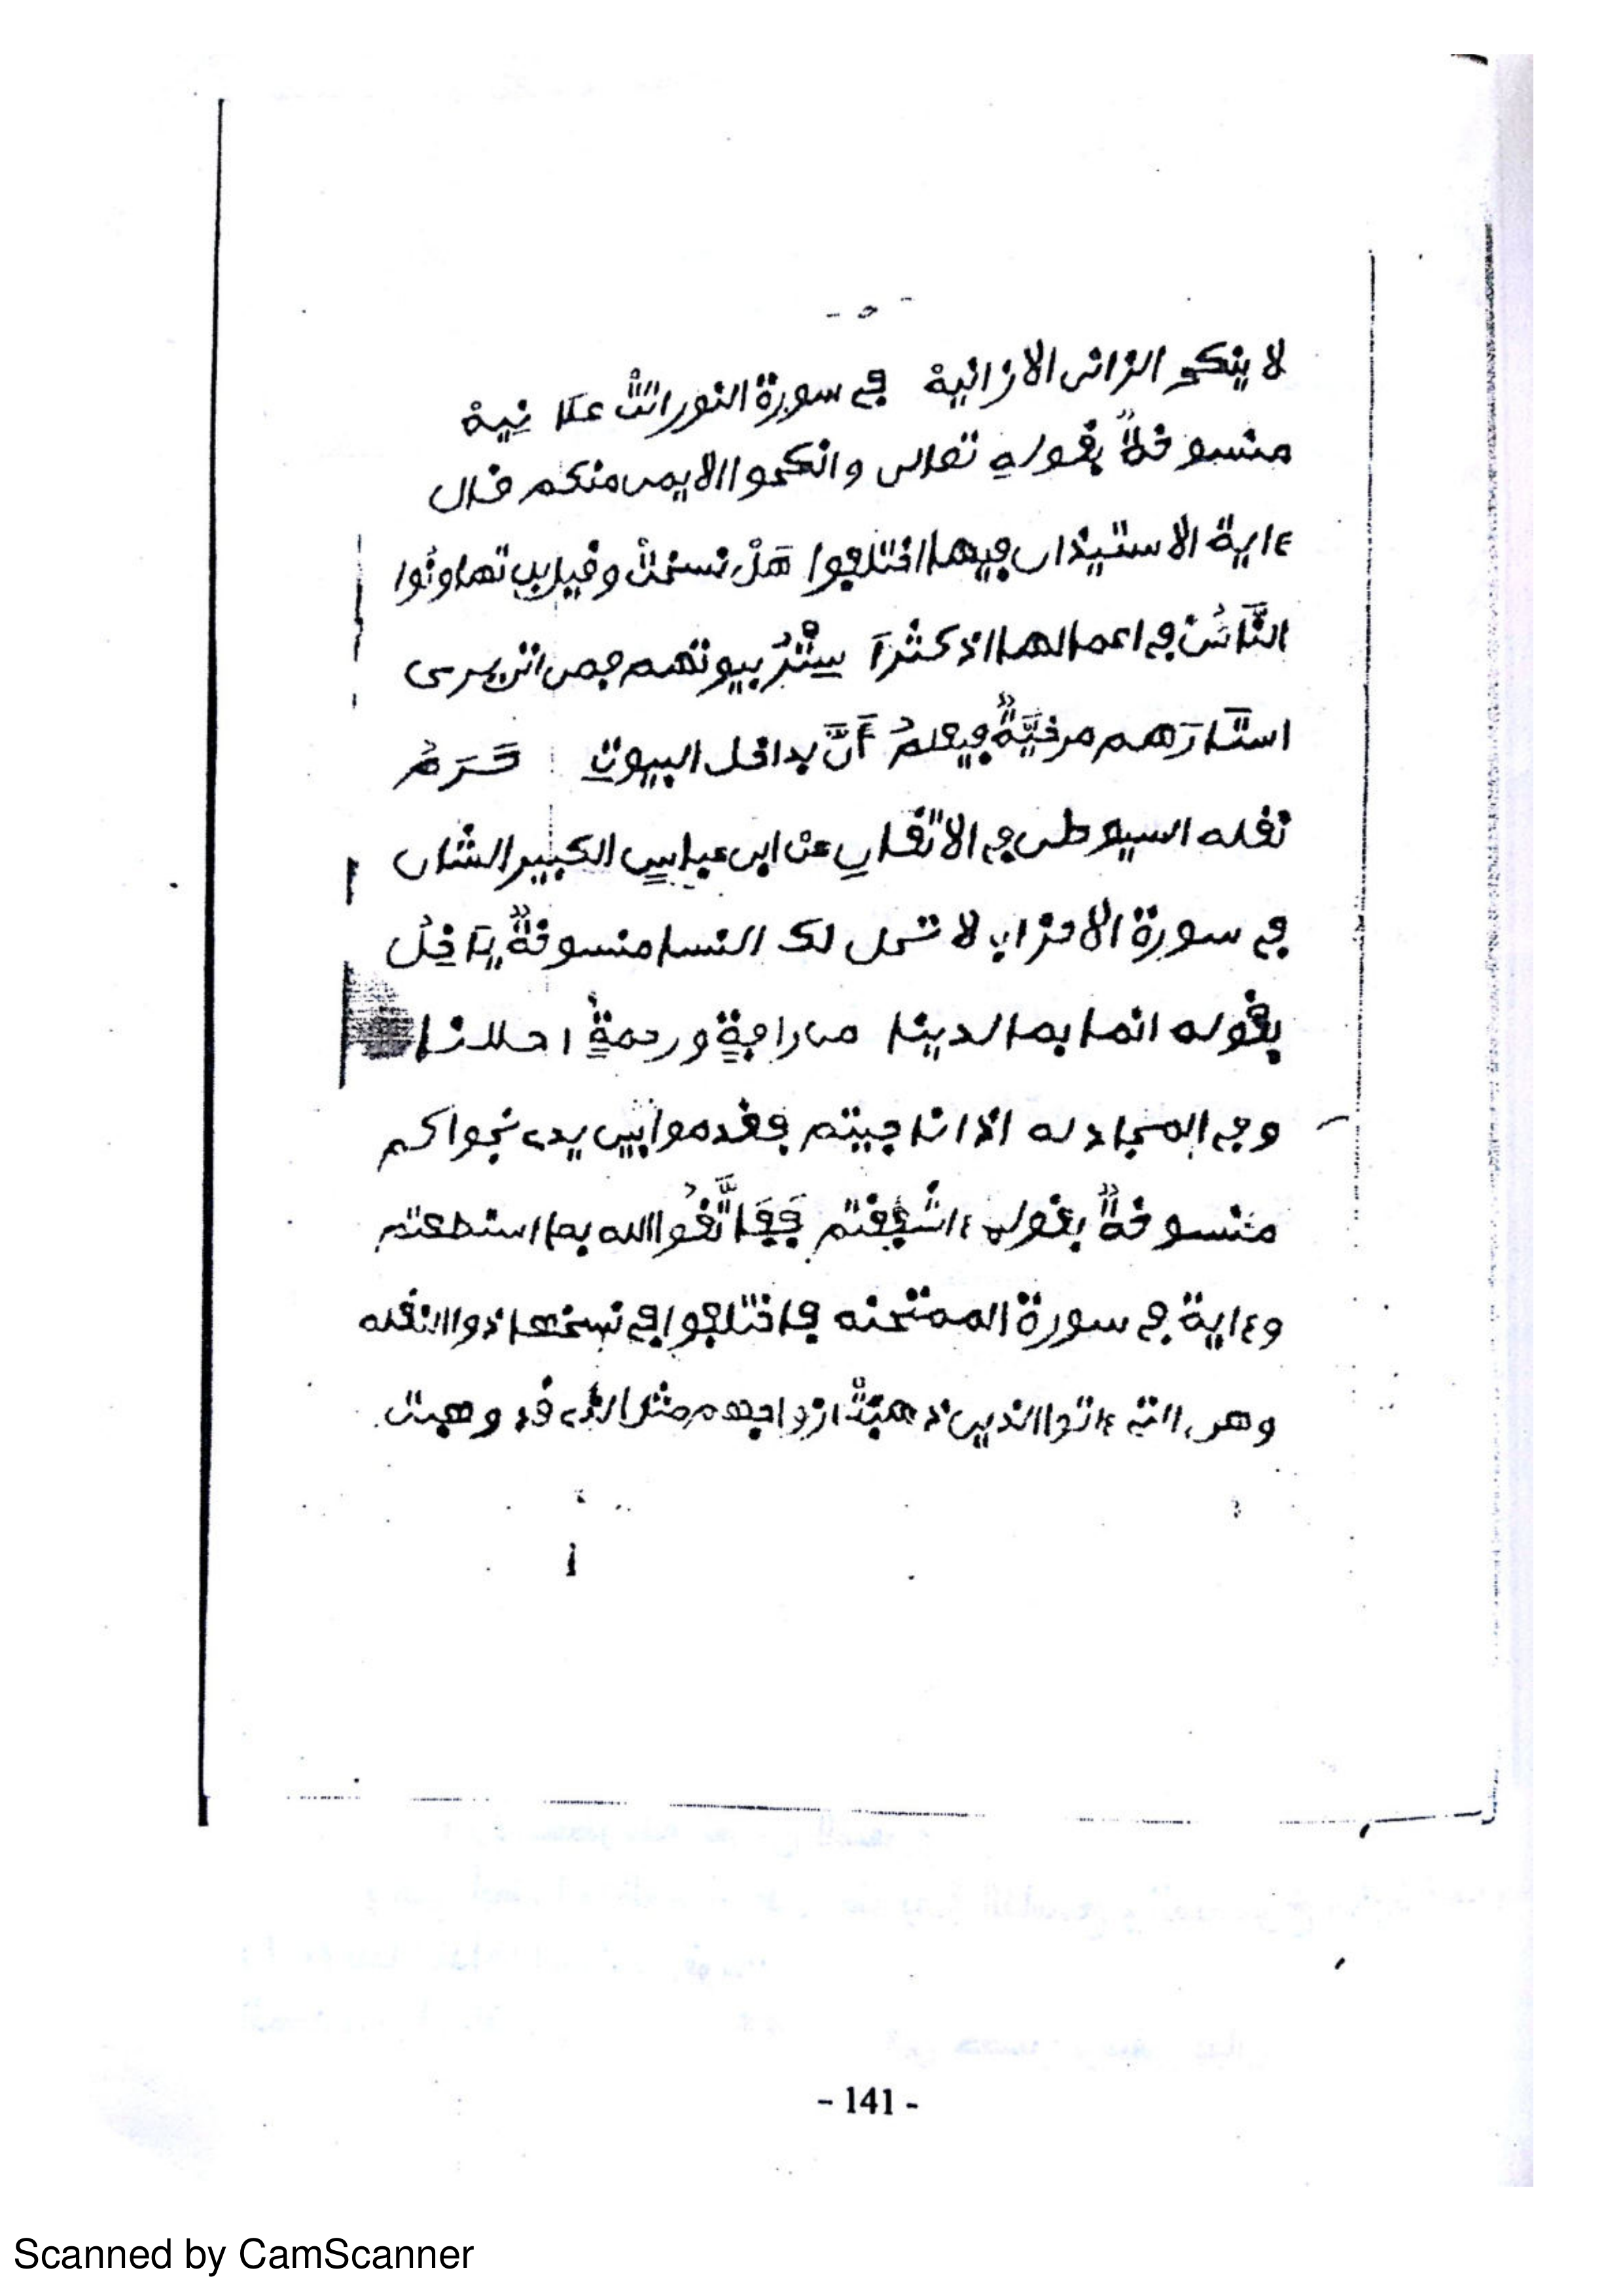 - ٥ -
لا ينكح الزانى الا زانية في سورة النور اتت علا نية
منسوخة بقوله تعالى وانكحوا الايمى منكم قال
ءاية الاستيذان فيها اختلفوا هل نسخت وقيل بل تهاونوا
الناس في اعمالها اذ كثرا ستر بيوتهم فمن اتى يرى
استارهم مرخية فيعلم أن بداخل البيوت حرم
نقله السيوطى في الاتقان عن ابن عباس الكبير الشان
في سورة الاحزاب لا تحل لك النسا منسوخة يا خل
بقوله انما بما لدينا من رافة ورحمة احللنا
وفي المجادله اذا ناجيتم فقدموا بين يدى نجواكم
منسوخة بقوله ءاشفقتم فاتقوا الله بما استطعتم
وءاية في سورة الممتحنه فاختلفوا في نسخها ذوا النقله
وهى التى ءاتوا الذين ذهبت ازواجهم مثل الذى قد وهبت
- 141 -
Scanned by CamScanner